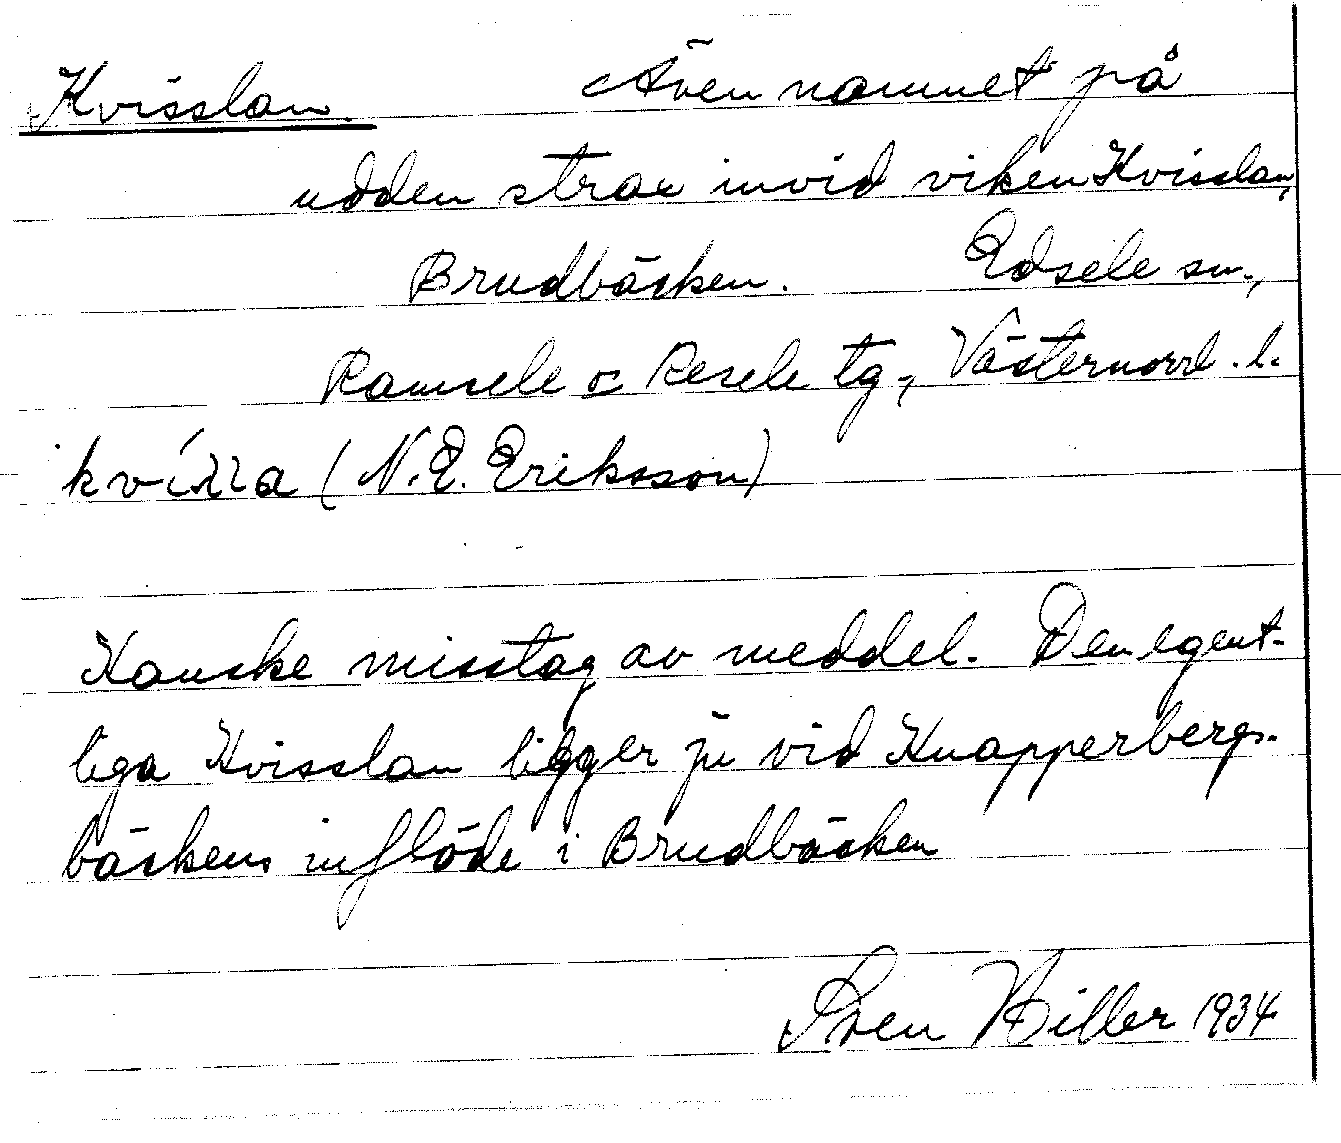 Kvisslan. Även namnet på
udden strax invid viken Kvisslan,
Brudbäcken. Edsele sn.,
Ramsele o Resele tg., Västernorrl. l.
(N. E. Eriksson)
Kanske misstag av meddel. Den egent-
liga Kvisslan ligger ju vid Knapperbergs-
bäckens inflöde i Brudbäcken
Sven Hiller 1934